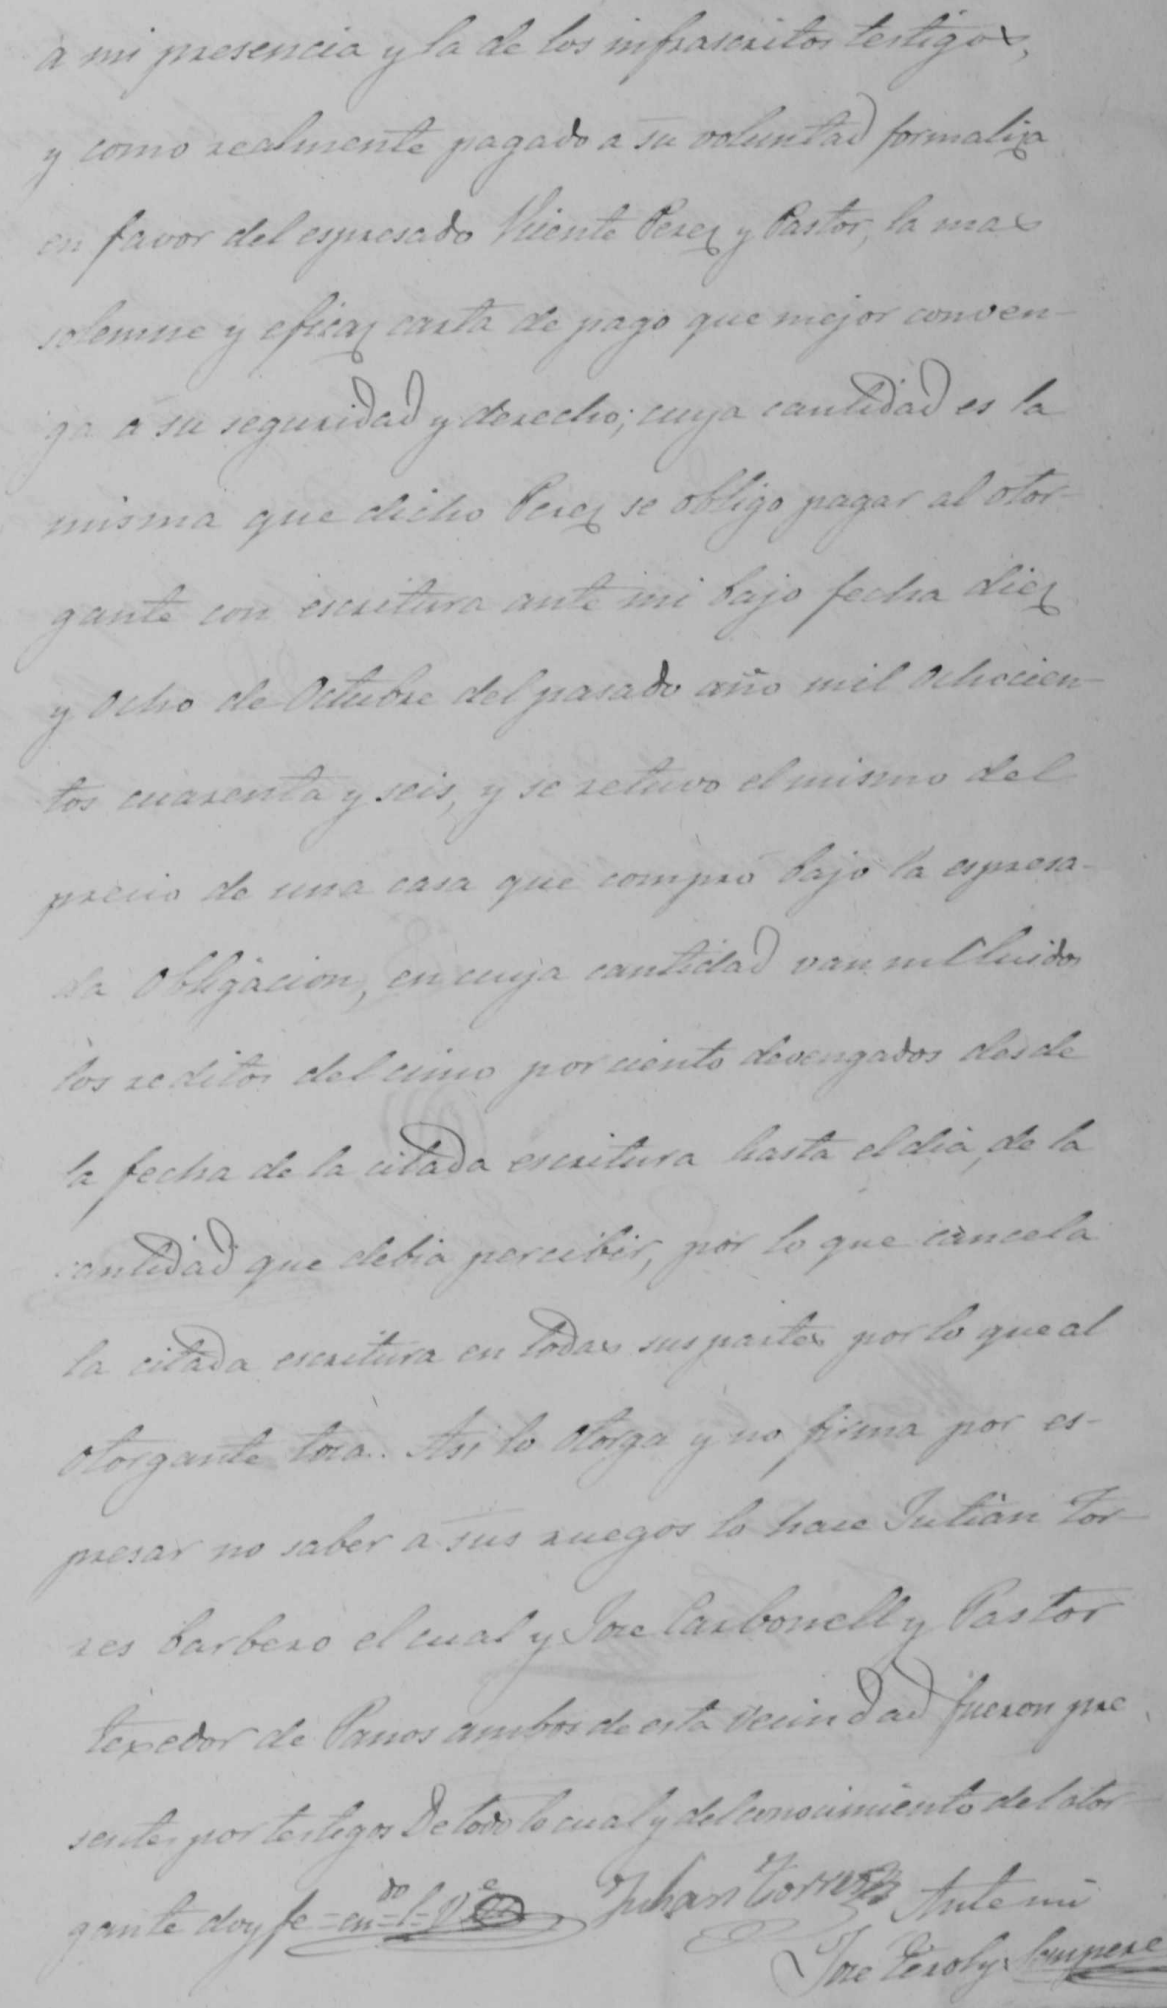 a mi presencia y la de los infrascritos testigos,
y como realmente pagado a su voluntad formaliza
en favor del espresado Vicente Perez y Pastor, la mas
solemne y eficaz carta de pago que mejor conven-
ga a su seguridad y derecho; cuya cantidad es la
misma que dicho Perez se obligo pagar al otor-
gante con escritura ante mi bajo fecha diez
y ocho de Octubre del pasado año mil ochocien-
tos cuarenta y seis, y se retuvo el mismo del
precio de una casa que compró bajo la espresa-
da obligacion, en cuya cantidad van incluidos
los reditos del cinco por ciento devengados desde
la fecha de la citada escritura hasta el dia, de la
cantidad que debia percibir, por lo que cancela
la citada escritura en todas sus partes por lo que al
otorgante toca. Asi lo otorga y no firma por es-
presar no saber a sus ruegos lo hace Julian Tor-
res barbero el cual y Jose Carbonell y Pastor
texedor de Panos ambos de esta vecindad fueron pre-
sentes por testigos De todo lo cual y del conocimiento del otor-
gante doy fe
Julian Torres
Ante mi
Jose Pérol y Sempere